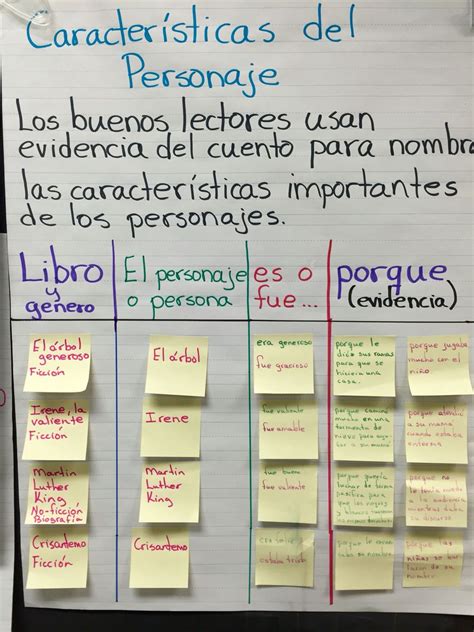 Características del
Personaje
Los buenos lectores usan
evidencia del cuento para nombra
las características importantes
de los personajes.
Libro
y
género
El personaje
o persona
es o
fue...
porque
(evidencia)
El árbol
generoso
Ficción
El árbol
era generoso
fue gracioso
porque le
dió sus ramas
para que se
hiciera una
casa.
porque jugaba
mucho con el
niño
Irene, la
valiente
Ficción
Irene
fue valiente
fue amable
porque caminó
mucho en una
tormenta de
nieve para
a su mamá
porque atendía
a su mamá
cuando estaba
enferma
Martin
Luther
King
No-ficción
Biografía
Martin
Luther
King
fue bueno
fue valiente
porque quería
luchar de forma
pacífica para
que los negros
y blancos
porque no
le tenía miedo
a la audiencia
mientras daba
su discurso
Crisantemo
Ficción
Crisantemo
estaba triste
porque le
su nombre
porque las
niñas se
de su
nombre